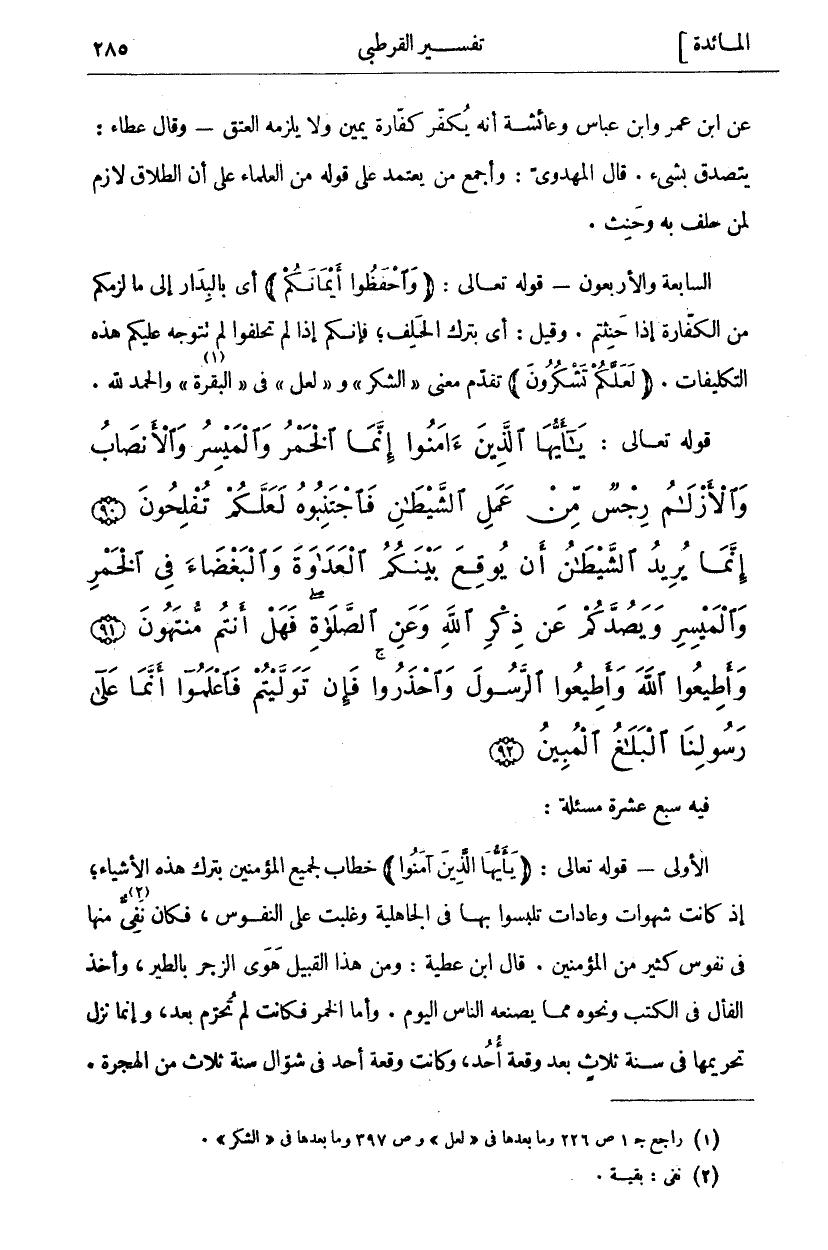 المائدة ] تفسير القرطبى ٢٨٥
عن ابن عمر وابن عباس وعائشة أنه يُكفّر كفّارة يمين ولا يلزمه العتق — وقال عطاء :
يتصدق بشىء . قال المهدوىّ : وأجمع من يعتمد على قوله من العلماء على أن الطلاق لازم
لمن حلف به وحَنِث .
السابعة والأربعون — قوله تعالى : ﴿ وَٱحْفَظُوا أَيْمَانَكُمْ ﴾ أى بالبِدَار إلى ما لزمكم
من الكفّارة إذا حَنِثتم . وقيل : أى بترك الحَلِف؛ فإنكم إذا لم تحلفوا لم تتوجه عليكم هذه
التكليفات . ﴿ لَعَلَّكُمْ تَشْكُرُونَ ﴾ تقدّم معنى « الشكر » و « لعل » فى « البقرة »(١) والحمد لله .
قوله تعالى : يَـٰٓأَيُّهَا ٱلَّذِينَ ءَامَنُوا إِنَّمَا ٱلْخَمْرُ وَٱلْمَيْسِرُ وَٱلْأَنصَابُ
وَٱلْأَزْلَـٰمُ رِجْسٌ مِّنْ عَمَلِ ٱلشَّيْطَـٰنِ فَٱجْتَنِبُوهُ لَعَلَّكُمْ تُفْلِحُونَ ٩٠
إِنَّمَا يُرِيدُ ٱلشَّيْطَـٰنُ أَن يُوقِعَ بَيْنَكُمُ ٱلْعَدَاوَةَ وَٱلْبَغْضَاءَ فِى ٱلْخَمْرِ
وَٱلْمَيْسِرِ وَيَصُدَّكُمْ عَن ذِكْرِ ٱللَّهِ وَعَنِ ٱلصَّلَوٰةِ ۖ فَهَلْ أَنتُم مُّنتَهُونَ ٩١
وَأَطِيعُوا ٱللَّهَ وَأَطِيعُوا ٱلرَّسُولَ وَٱحْذَرُوا ۚ فَإِن تَوَلَّيْتُمْ فَٱعْلَمُوٓا أَنَّمَا عَلَىٰ
رَسُولِنَا ٱلْبَلَـٰغُ ٱلْمُبِينُ ٩٢
فيه سبع عشرة مسئلة :
الأولى — قوله تعالى : ﴿ يَـٰأَيُّهَا الَّذِينَ آمَنُوا ﴾ خطاب لجميع المؤمنين بترك هذه الأشياء؛
إذ كانت شهوات وعادات تلبسوا بها فى الجاهلية وغلبت على النفوس ، فكان نَفِىٌّ(٢) منها
فى نفوس كثير من المؤمنين . قال ابن عطية : ومن هذا القبيل هَوَى الزجر بالطير ، وأخذ
الفأل فى الكتب ونحوه مما يصنعه الناس اليوم . وأما الخمر فكانت لم تُحرّم بعد، وإنما نزل
تحريمها فى سنة ثلاث بعد وقعة أُحُد، وكانت وقعة أحد فى شوّال سنة ثلاث من الهجرة .
(١) راجع جـ ١ ص ٢٢٦ وما بعدها فى « لعل » و ص ٣٩٧ وما بعدها فى « الشكر » .
(٢) نفى : بقية .